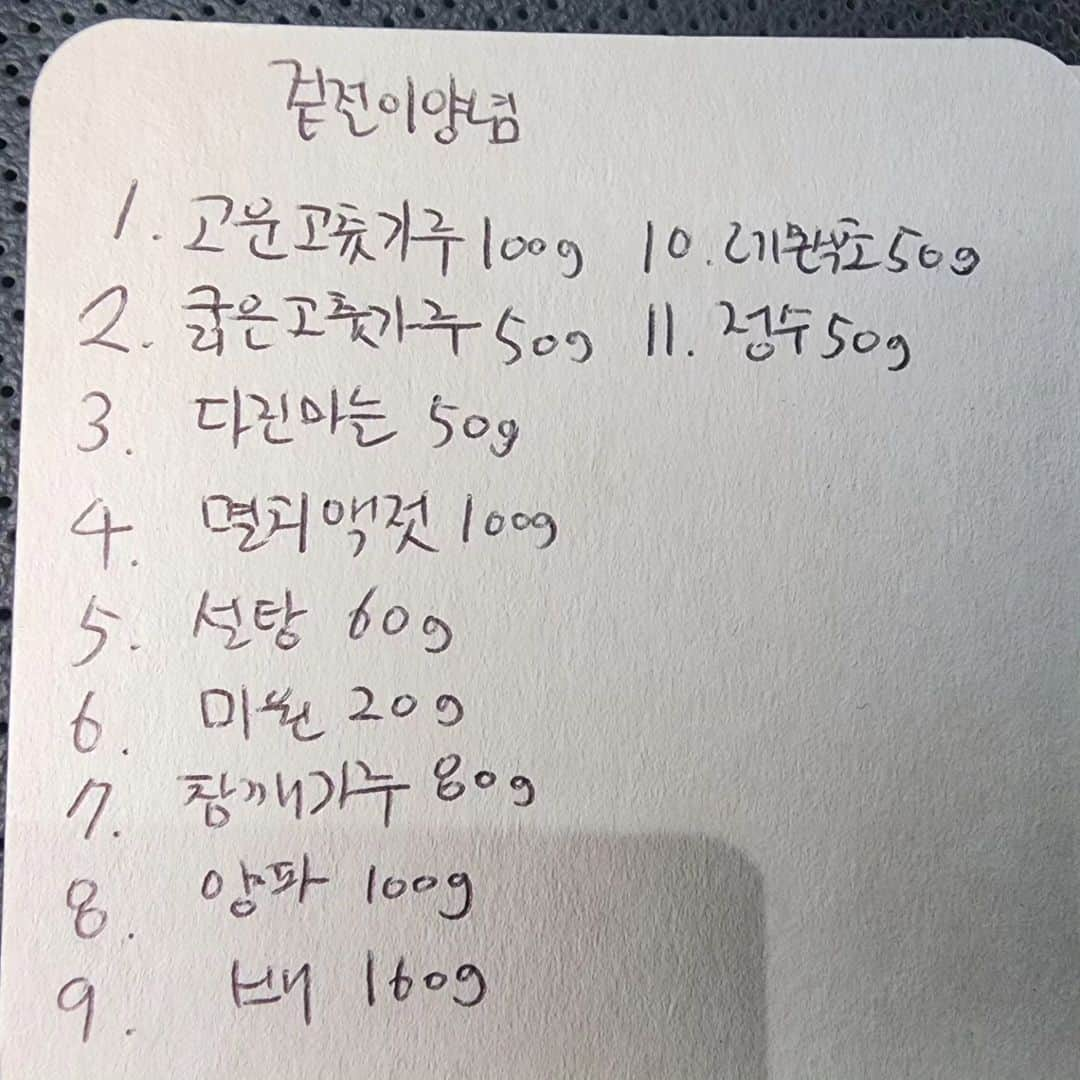 겉절이양념
1. 고운고춧가루 100g
2. 굵은고춧가루 50g
3. 다진마늘 50g
4. 멸치액젓 100g
5. 설탕 60g
6. 미원 20g
7. 참깨가루 80g
8. 양파 100g
9. 배 160g
10. 레몬식초 50g
11. 정수 50g